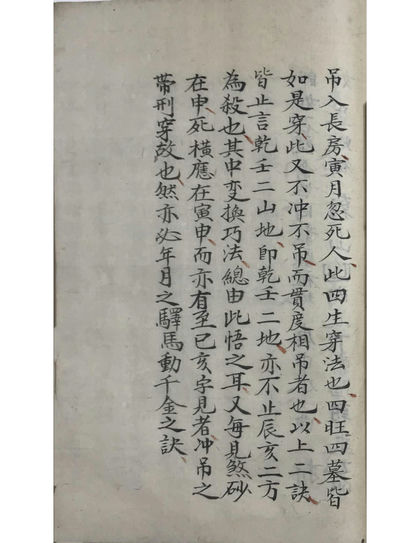 吊入長房寅月忽死人此四生穿法也四旺四墓皆
如是穿此又不冲不吊而貫度相吊者也以上二訣
皆止言乾壬二山地即乾壬二地亦不止辰亥二方
為殺也其中变換巧法總由此悟之耳又每見煞砂
在申死橫應在寅申而亦有至巳亥字見者冲吊之
帶刑穿故也然亦必年月之驛馬動千金之訣